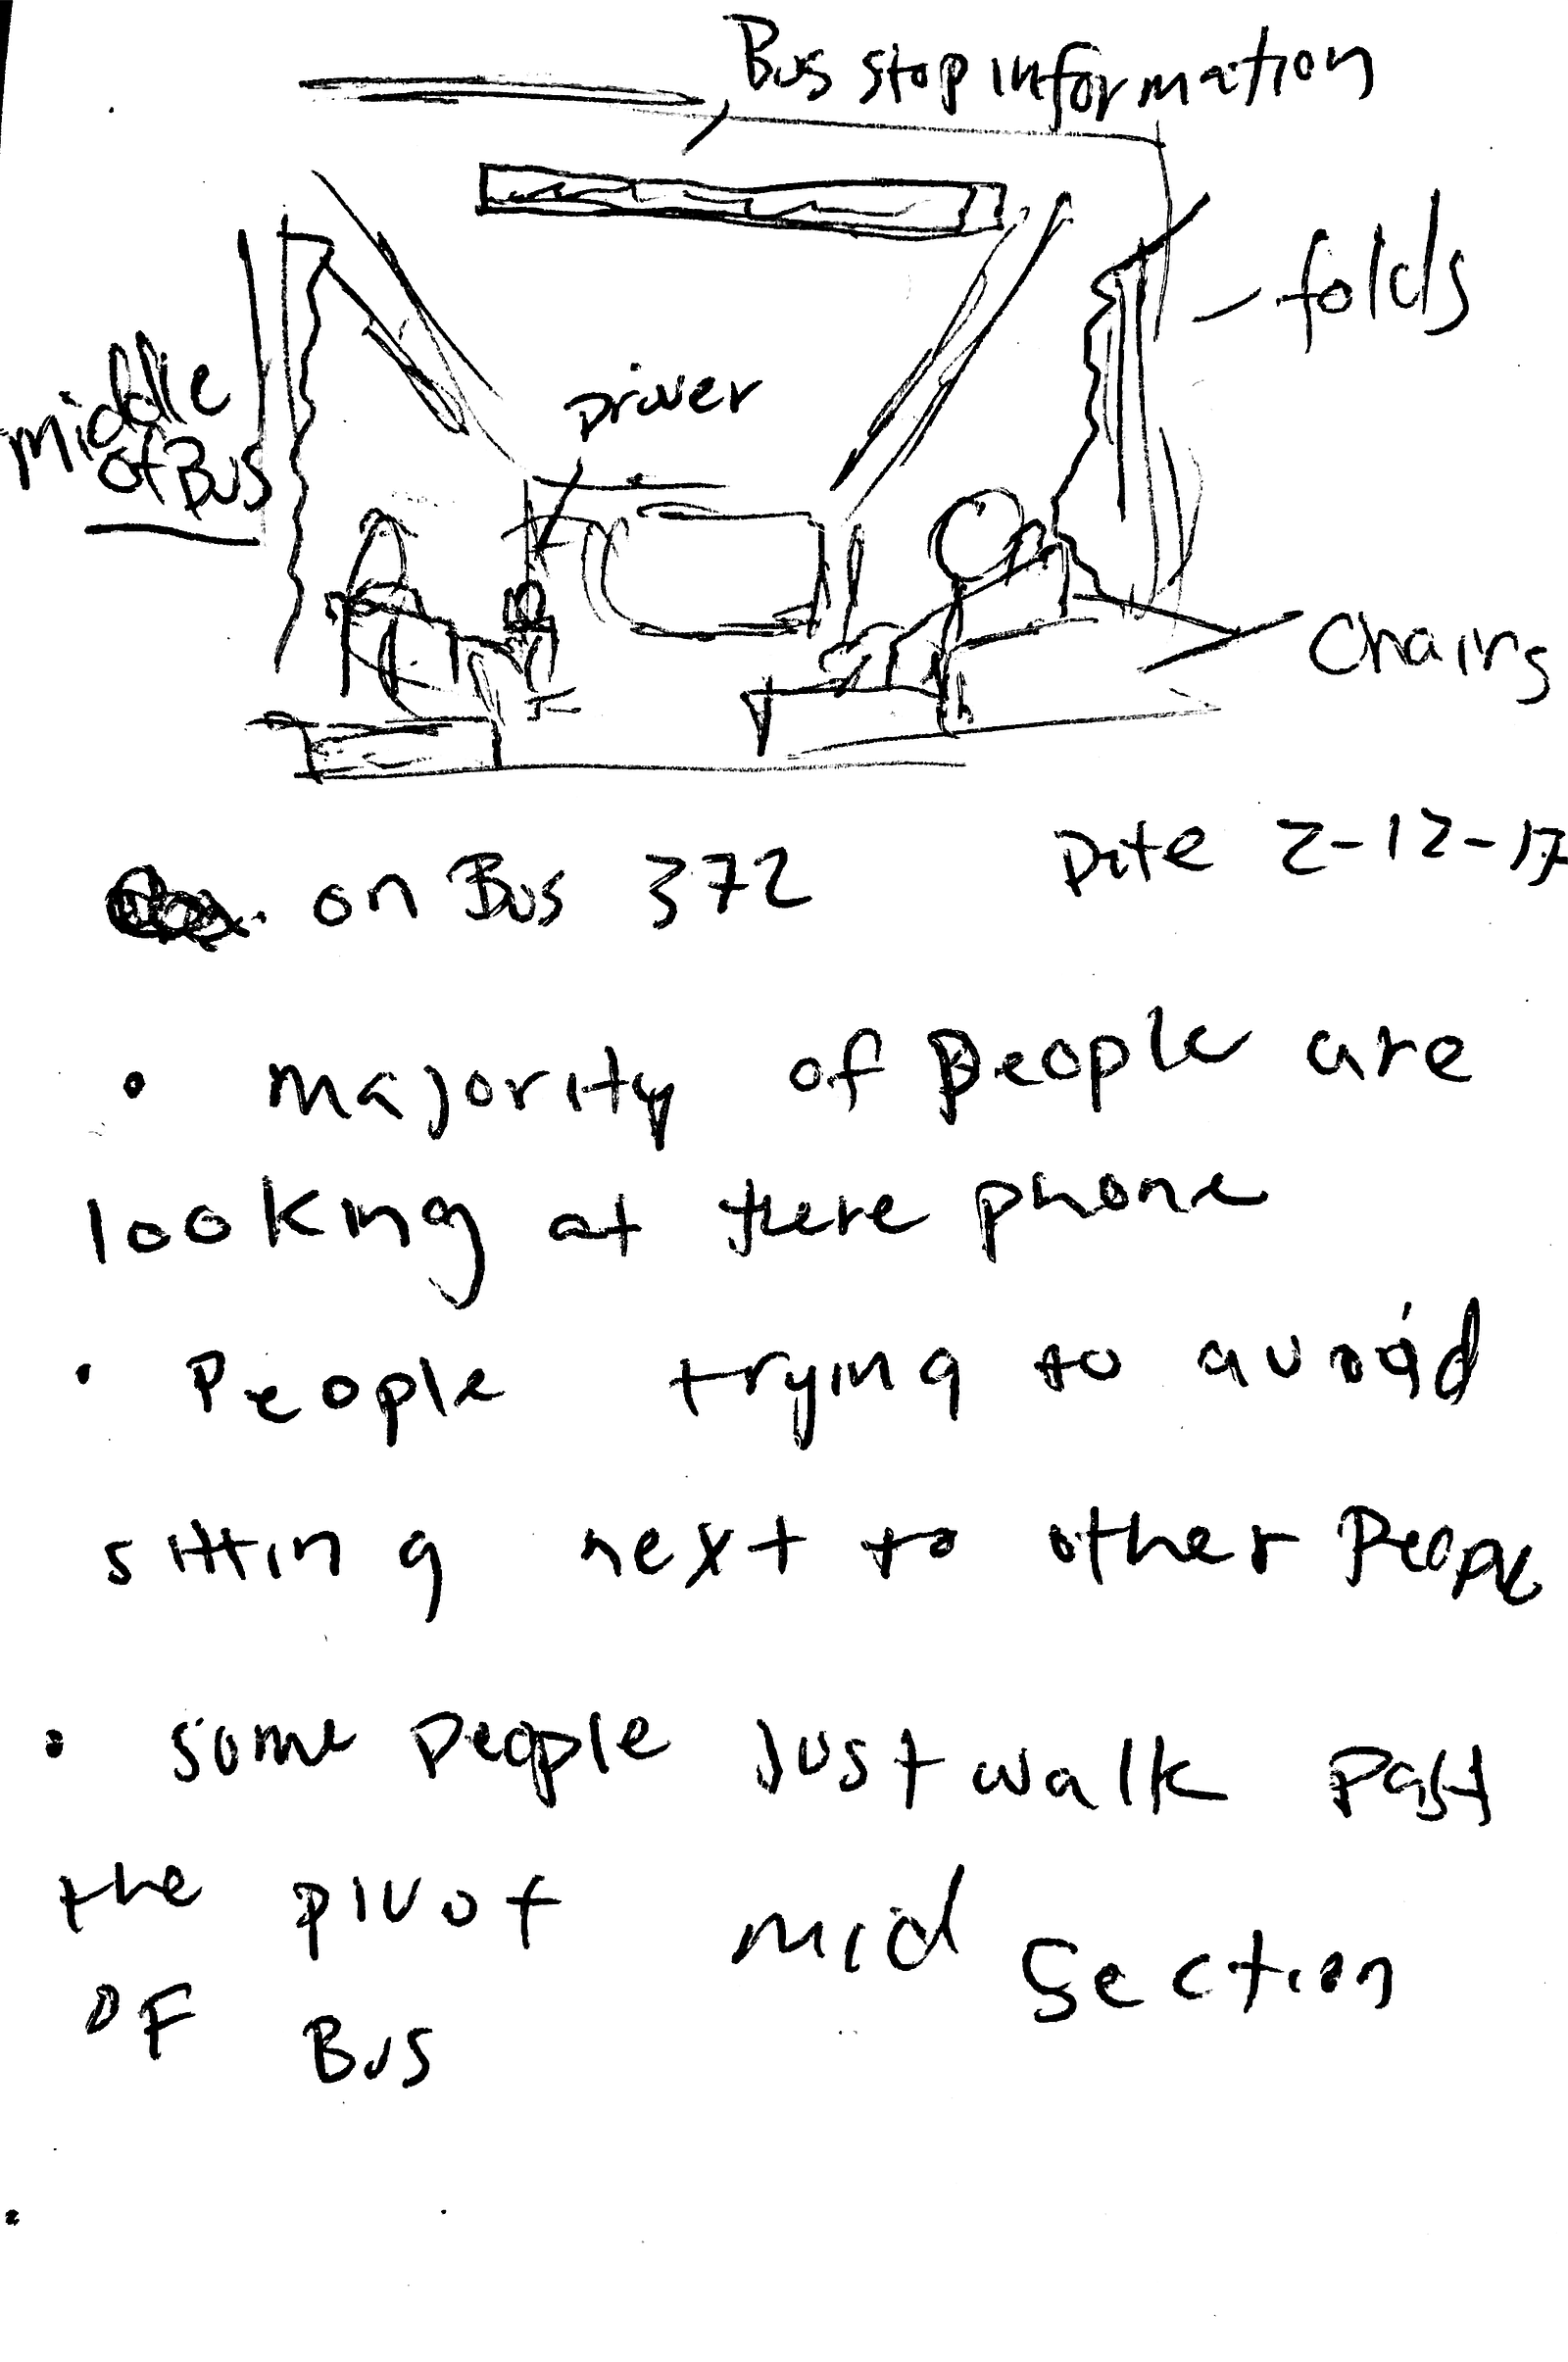 Bus stop information
folds
Driver
middle
of Bus
Chairs
on Bus 372 Date 2-12-17
• majority of people are
looking at there phone
• People trying to avoid
sitting next to other People
• some people Just walk past
the pivot mid Section
OF Bus